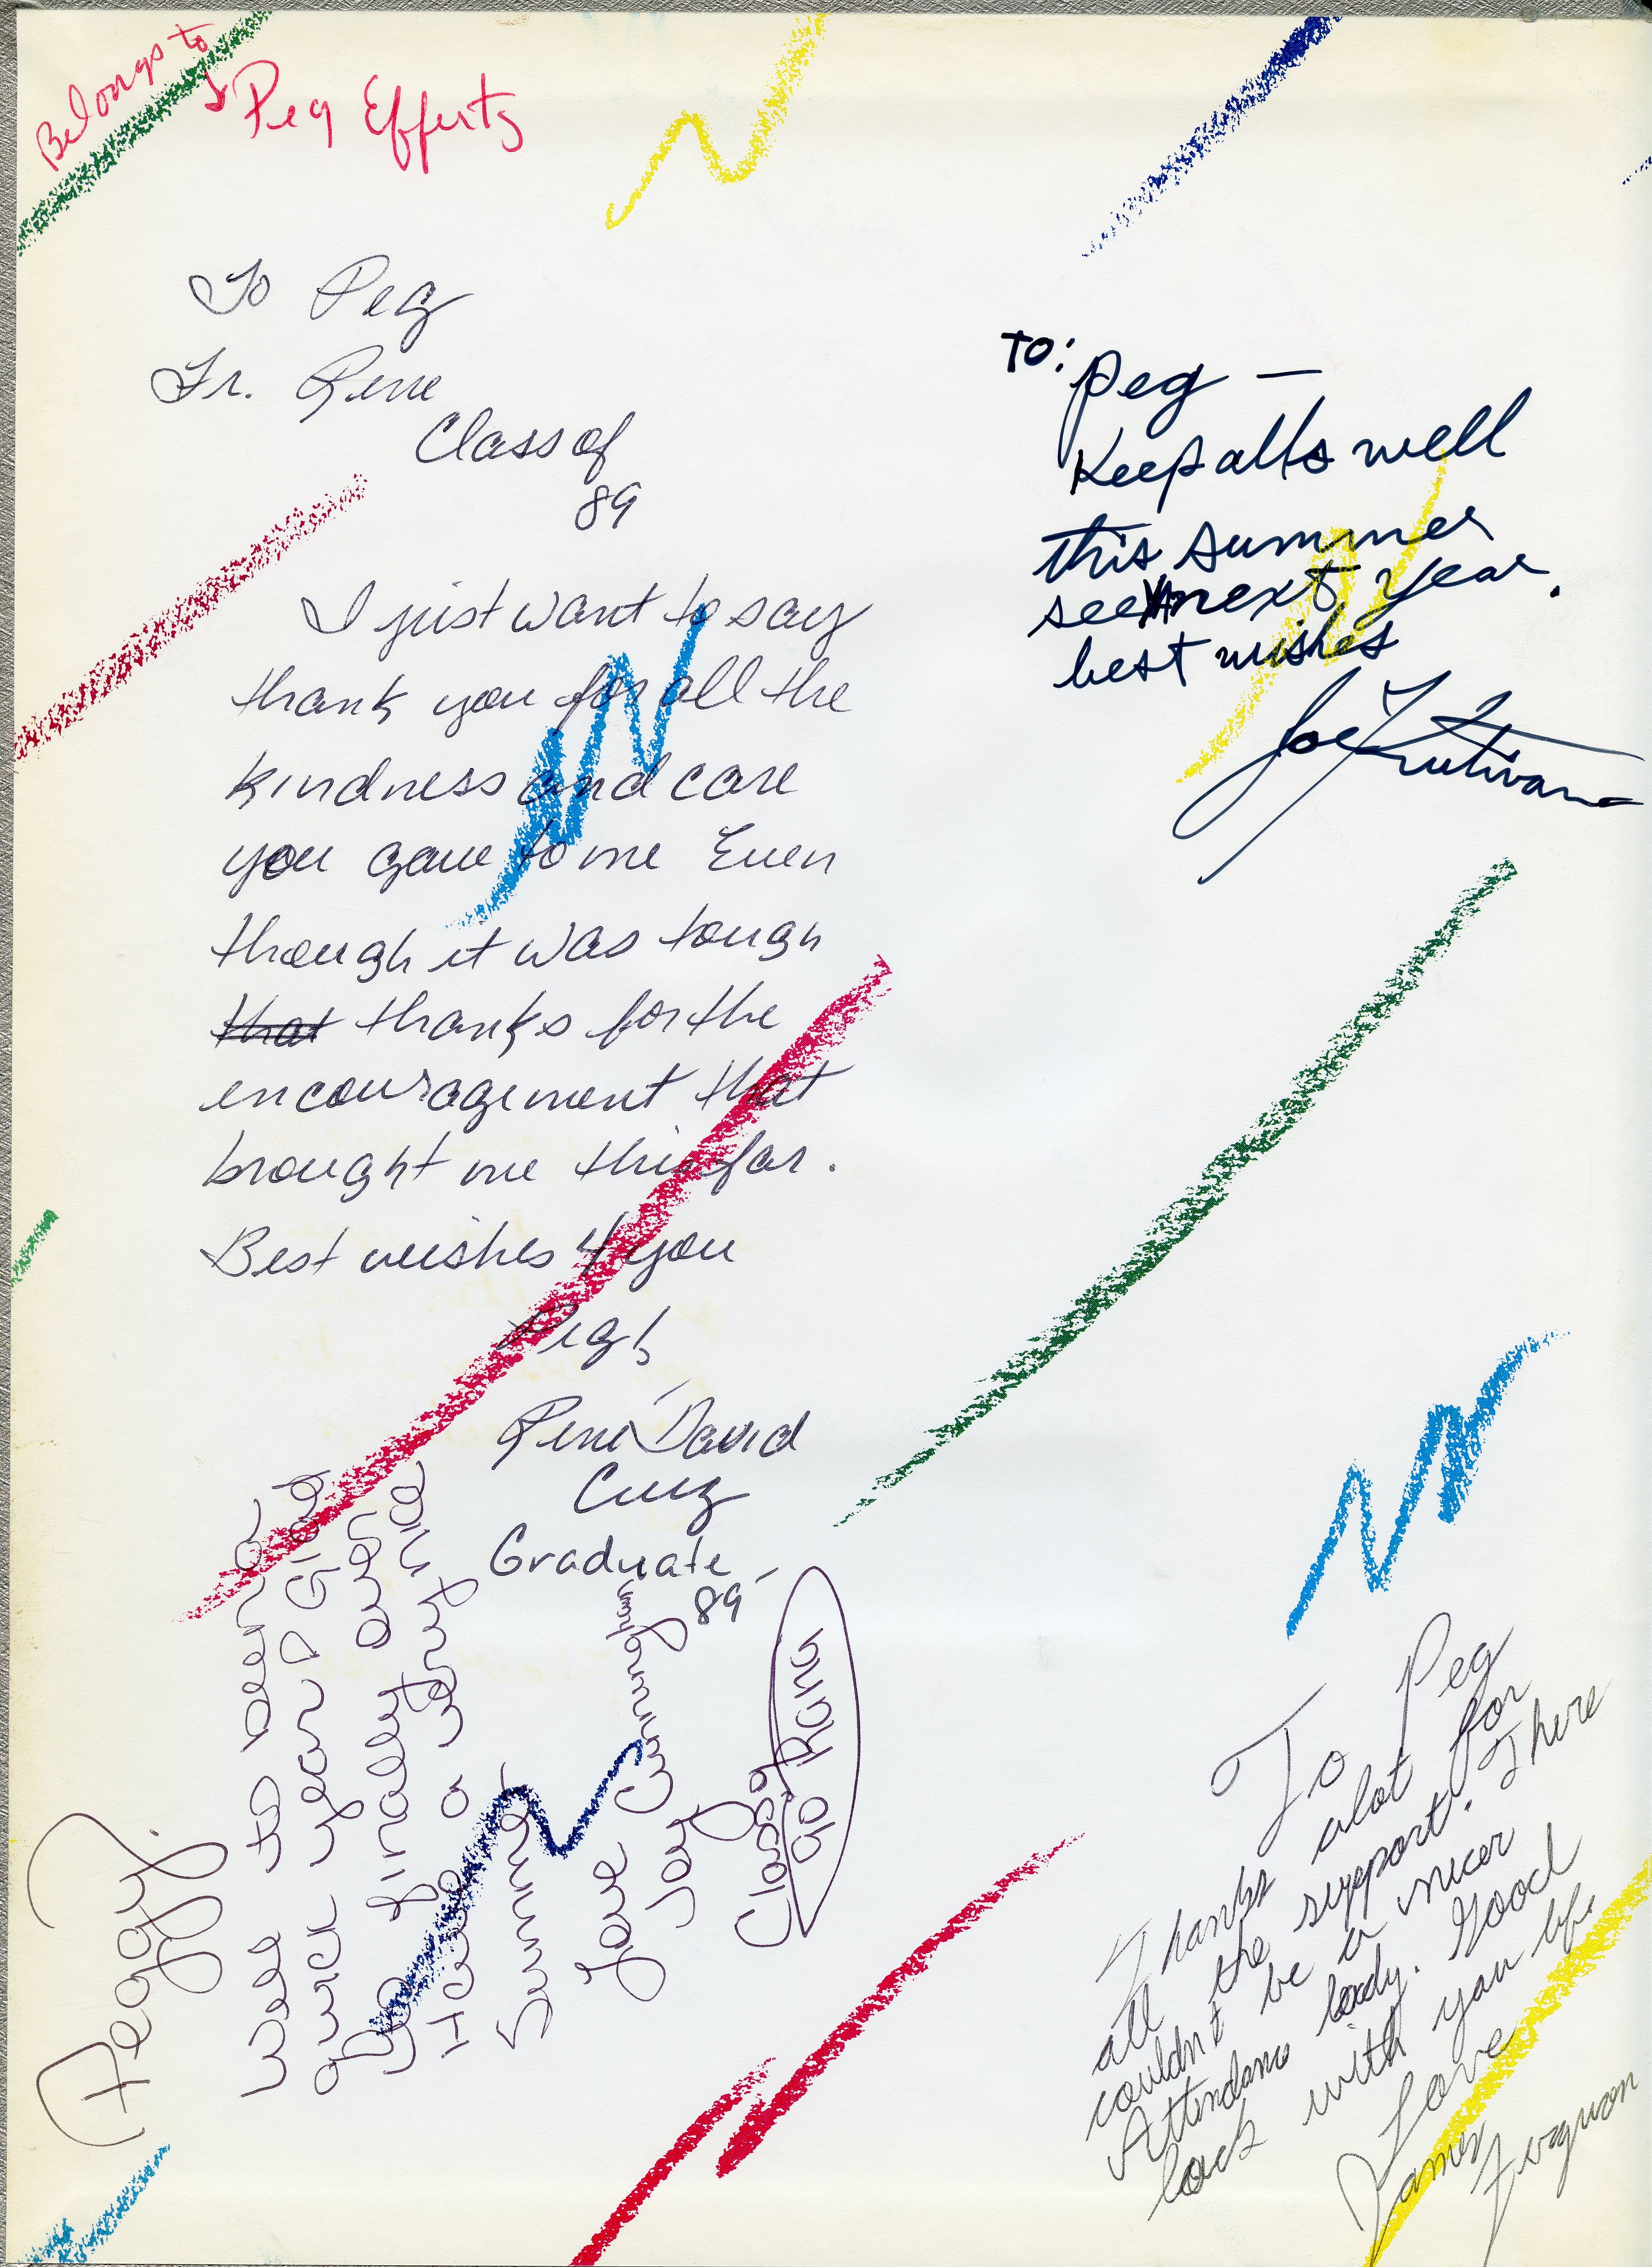 Belongs to
Peg Effertz
To Peg
Fr. Rene
Class of
89
I just want to say
thank you for all the
kindness and care
you gave to me Even
though it was tough
that thanks for the
encouragement that
brought me this far.
Best wishes 4 you
Peg!
Rene David
Cruz
Graduate
89
TO: Peg —
Keep alls well
this summer
see next year.
best wishes
Joe
Peggy.
Well its been a
quick year & Glad
its finally over
Have a very nice
Summer
Love Cunningham
Jay
Class of
90 Rang
To Peg
Thanks alot for
all the support. There
couldn't be a nicer
Attendans lady. Good
lock with you life
Love
James Ferguson